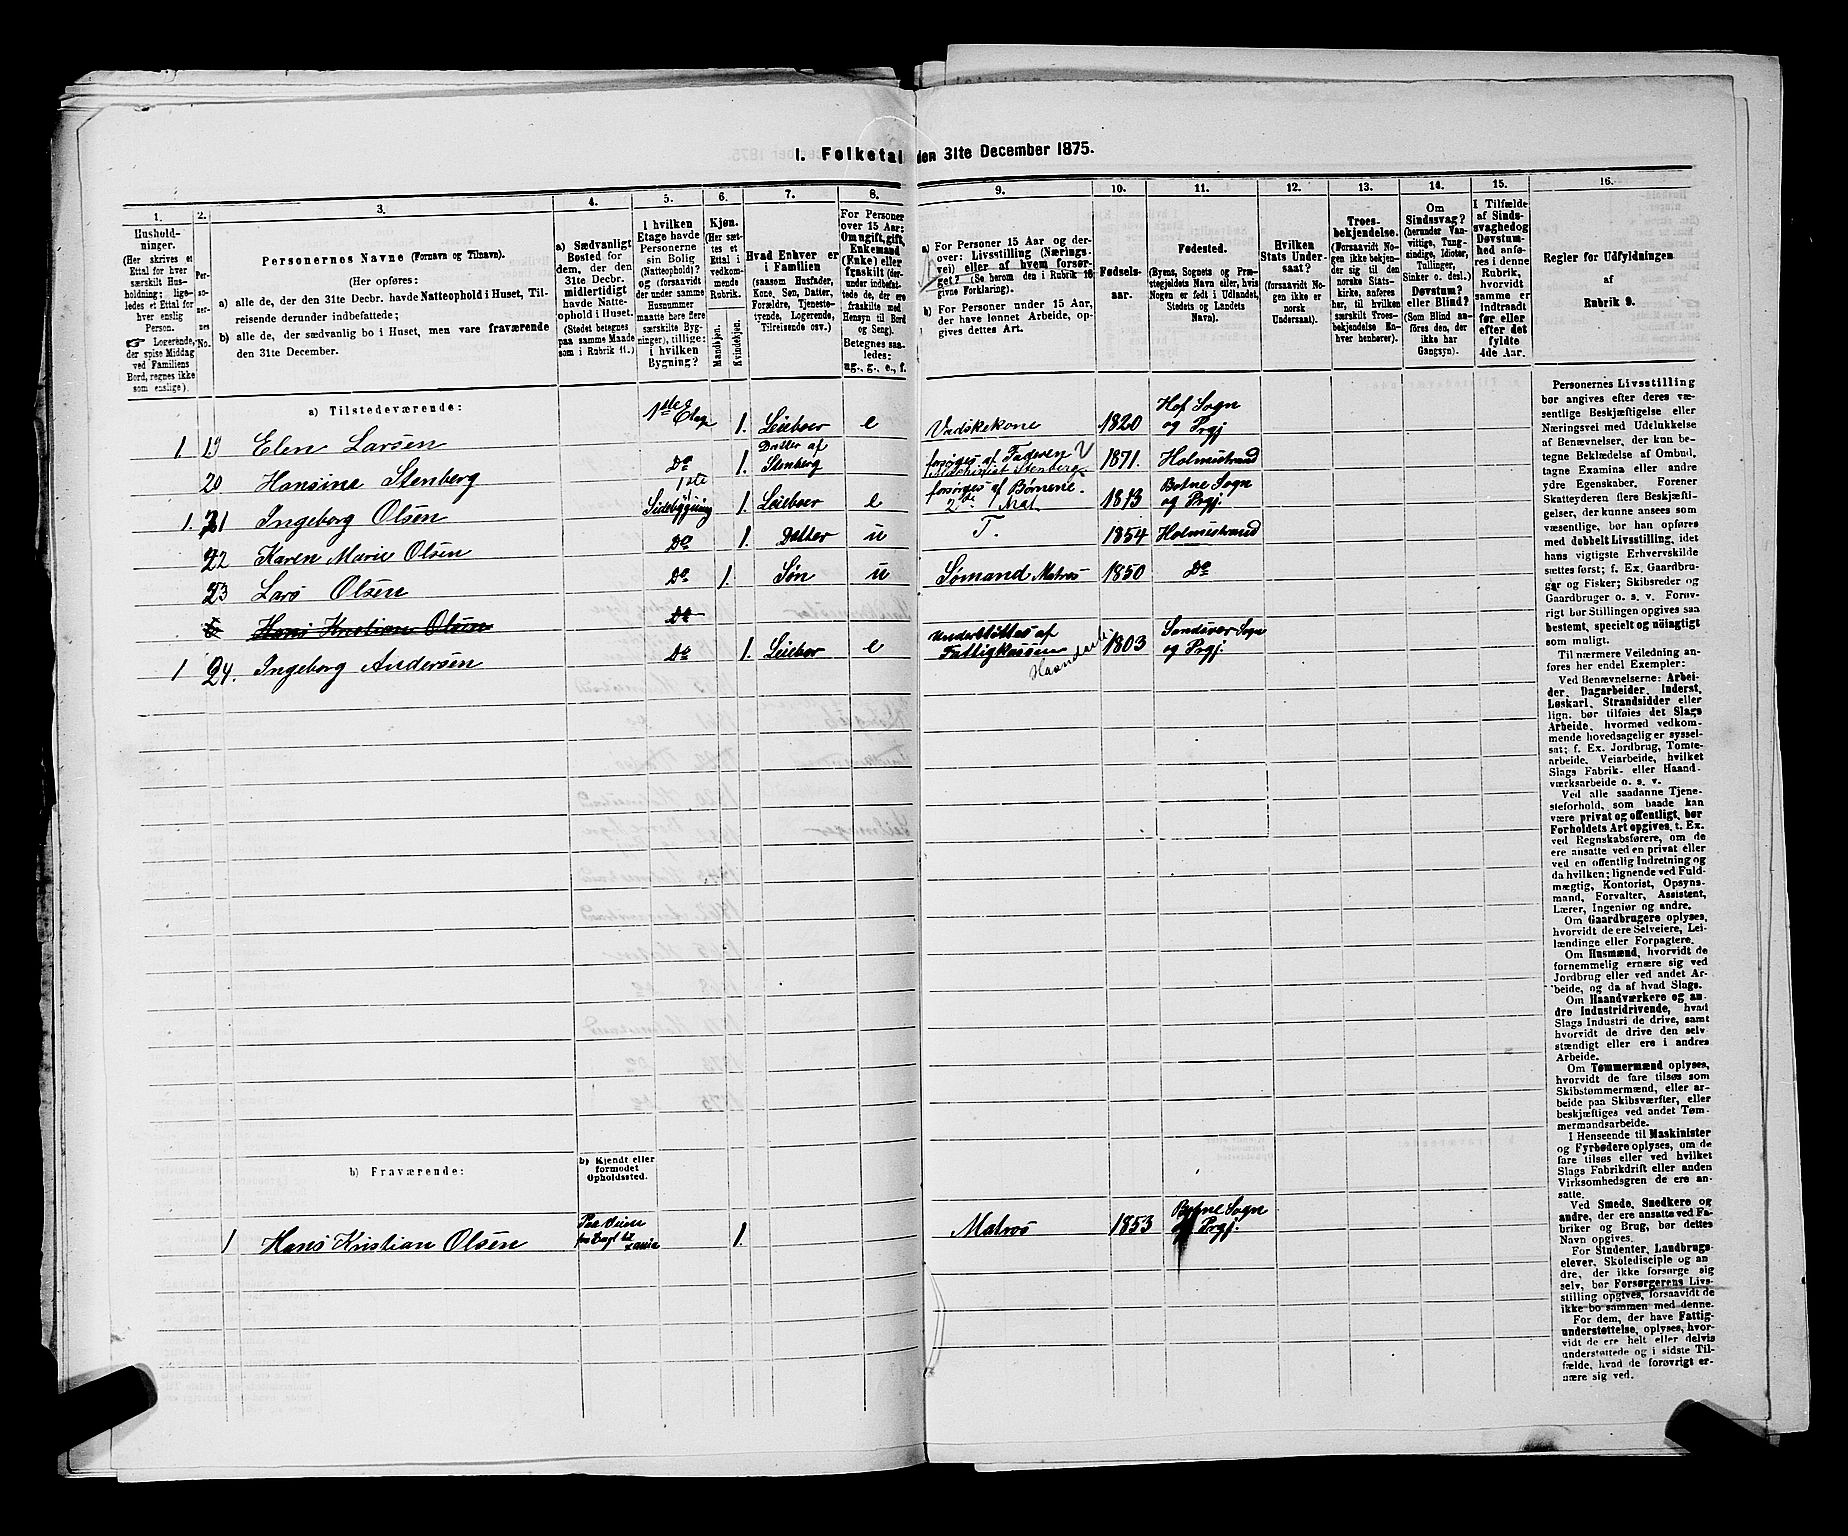 1. Folketal den 31te December 1875.
1. 2. 3. 4. 5. 6. 7. 8. 9. 10. 11. 12. 13. 14. 15. 16.
Hushold-
ninger.
(Her skrives et
Ettal for hver
særskilt Hus-
holdning; lige-
ledes et Ettal for
hver enslig
Person.
☞ Logerende,
der spise Middag
ved Familiens
Bord, regnes ikke
som enslige).
Per-
so-
ner-
nes
No.
Personernes Navne (Fornavn og Tilnavn).
(Her opføres:
a) alle de, der den 31te Decbr. havde Natteophold i Huset, Til-
reisende derunder indbefattede;
b) alle de, der sædvanlig bo i Huset, men vare fraværende
den 31te December.
a) Sædvanligt
Bosted for
dem, der den
31te Decbr.
midlertidigt
havde Natte-
ophold i Huset.
(Stedet betegnes
paa samme Maade
som i Rubrik 11.)
I hvilken
Etage havde
Personerne
sin Bolig
(Natteophold)?
og (forsaavidt
der under samme
Husnummer
maatte høre flere
særskilte Byg-
ninger), tillige:
i hvilken
Bygning?
Kjøn.
(Her sæt-
tes et
Ettal i
vedkom-
mende
Rubrik.
Mandkjøn.
Kvindekjøn.
Hvad Enhver er
i Familien
(saasom Husfader,
Kone, Søn, Datter,
Forældre, Tjeneste-
tyende, Logerende,
Tilreisende osv.)
For Personer
over 15 Aar:
Om ugift, gift,
Enkemand
(Enke) eller
fraskilt (der-
under indbefat-
tede de, der ere
fraskilte med
Hensyn til Bord
og Seng).
Betegnes saa-
ledes:
ug., g., e., f.
a) For Personer 15 Aar og der-
over: Livsstilling (Nærings-
vei) eller af hvem forsør-
get? (Se herom den i Rubrik 16
givne Forklaring).
b) For Personer under 15 Aar,
der have lønnet Arbeide, op-
gives dettes Art.
Fødsels-
aar.
Fødested.
(Byens, Sognets og Præ-
stegjeldets Navn eller, hvis
Nogen er født i Udlandet,
Stedets og Landets
Navn).
Hvilken
Stats Under-
saat?
(forsaavidt No-
gen ikke er
norsk
Undersaat).
Troes-
bekjendelse.
(Forsaavidt No-
gen ikke bekjen-
der sig til den
norske Stats-
kirke, anføres
her, til hvilken
særskilt Troes-
bekjendelse En-
hver henhører).
Om
Sindssvag?
(herunder Van-
vittige, Tung-
sindige, Idioter,
Tullinger,
Sinker o. desl.)
Døvstum?
eller Blind?
(Som Blind an-
føres den, der
ikke har
Gangsyn).
I Tilfælde
af Sinds-
svaghed og
Døvstum-
hed anfø-
res i denne
Rubrik,
hvorvidt
samme er
indtraadt
før eller
efter det
fyldte
4de Aar.
Regler for Udfyldningen
af
Rubrik 9.
a) Tilstedeværende:
1 19 Elen Larsen 1ste Etag 1. Leieboer e Vadskekone 1820 Hof Sogn og Prgj
20 Hansine Stenberg Do 1. Datter af Stenberg forsørges af Faderen Maschinist Stenberg 1871. Holmestrand
1. 21 Ingeborg Olsen 1ste Sidebygning 1. Leieboer e forsørges af Børnene. 1813 Botne Sogn og Prgj.
22 Karen Marie Olsen Do 1. Datter u T. 1854 Holmestrand
23 Lars Olsen Do 1. Søn u Sømand Matros 1850 Do
Hans Kristian Olsen Do
1 24. Ingeborg Andersen Do 1. Leiebor e Understøttes af Fattigkassen 1803 Sandsver Sogn og Prgj.
b) Fraværende:
b) Kjendt eller
formodet
Opholdssted.
1 Hans Kristian Olsen 1. Matros 1853 Botne Sogn og Prgj.
Personernes Livsstilling
bør angives efter deres væ-
sentlige Beskjæftigelse eller
Næringsvei med Udelukkelse
af Benævnelser, der kun be-
tegne Beklædelse af Ombud,
tagne Examina eller andre
ydre Egenskaber. Forener
Skatteyderen flere Beskjæfti-
gelser, der kunne ansees som
væsentlige, bør han opføres
med dobbelt Livsstilling, idet
hans vigtigste Erhvervskilde
sættes først; f. Ex. Gaardbru-
ger og Fisker; Skibsreder og
Gaardbruger o. s. v. Forøv-
rigt bør Stillingen opgives saa
bestemt, specielt og nøiagtigt
som muligt.
Til nærmere Veiledning an-
føres her endel Exempler:
Ved Benævnelserne: Arbei-
der, Dagarbeider, Inderst,
Løskarl, Strandsidder eller
lign. bør tilføies det Slags
Arbeide, hvormed vedkom-
mende hovedsagelig er syssel-
sat; f. Ex. Jordbrug, Tomte-
arbeide, Veiarbeide, hvilket
Slags Fabrik- eller Haand-
værksarbeide o. s. v.
Ved alle saadanne Tjene-
steforhold, som baade kan
være privat og offentligt, bør
Forholdets Art opgives, t. Ex.
ved Regnskabsførere, om de
ere ansatte ved en privat eller
ved en offentlig Indretning og
da hvilken; lignende ved Fuld-
mægtig, Kontorist, Opsyns-
mand, Forvalter, Assistent,
Lærer, Ingeniør og andre.
Om Gaardbrugere oplyses,
hvorvidt de ere Selveiere, Lei-
lændinge eller Forpagtere.
Om Husmænd, hvorvidt de
fornemmelig ernære sig ved
Jordbrug eller ved andet Ar-
beide, og da af hvad Slags.
Om Haandværkere og an-
dre Industridrivende, hvad
Slags Industri de drive, samt
hvorvidt de drive den selv-
stændigt eller ere i andres
Arbeide.
Om Tømmermænd oplyses,
hvorvidt de fare tilsøs som
Skibstømmermænd, eller ar-
beide paa Skibsværfter, eller
beskjæftiges ved andet Tøm-
mermandsarbeide.
I Henseende til Maskinister
og Fyrbødere oplyses, om de
fare tilsøs eller ved hvilket
Slags Fabrikdrift eller anden
Virksomhedsgren de ere an-
satte.
Ved Smede, Snedkere og
andre, der ere ansatte ved Fa-
briker og Brug, bør dettes
Navn opgives.
For Studenter, Landbrugs-
elever, Skoledisciple og an-
dre, der ikke forsørge sig
selv, bør Forsørgerens Livs-
stilling opgives, forsaavidt de
ikke bo sammen med denne.
For dem, der have Fattig-
understøttelse, oplyses, hvor-
vidt de ere helt eller delvis
understøttede og i sidste Til-
fælde, hvad de forøvrigt er-
nære sig ved.